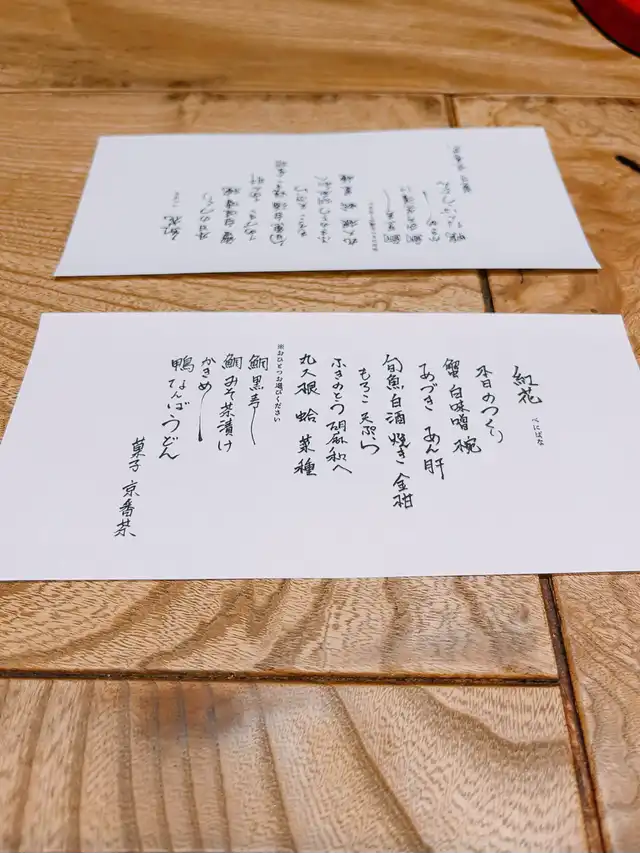 紅花 べにばな
本日のつくり
蟹 白味噌 椀
あづき あん肝
旬魚白酒焼き 金柑
もろこ 天ぷら
ふきのとう 胡麻和へ
丸大根 蛤 菜種
※おひとつお選びください
鯛黒寿し
鯛みそ茶漬け
かきめし
鴨なんばうどん
菓子 京番茶